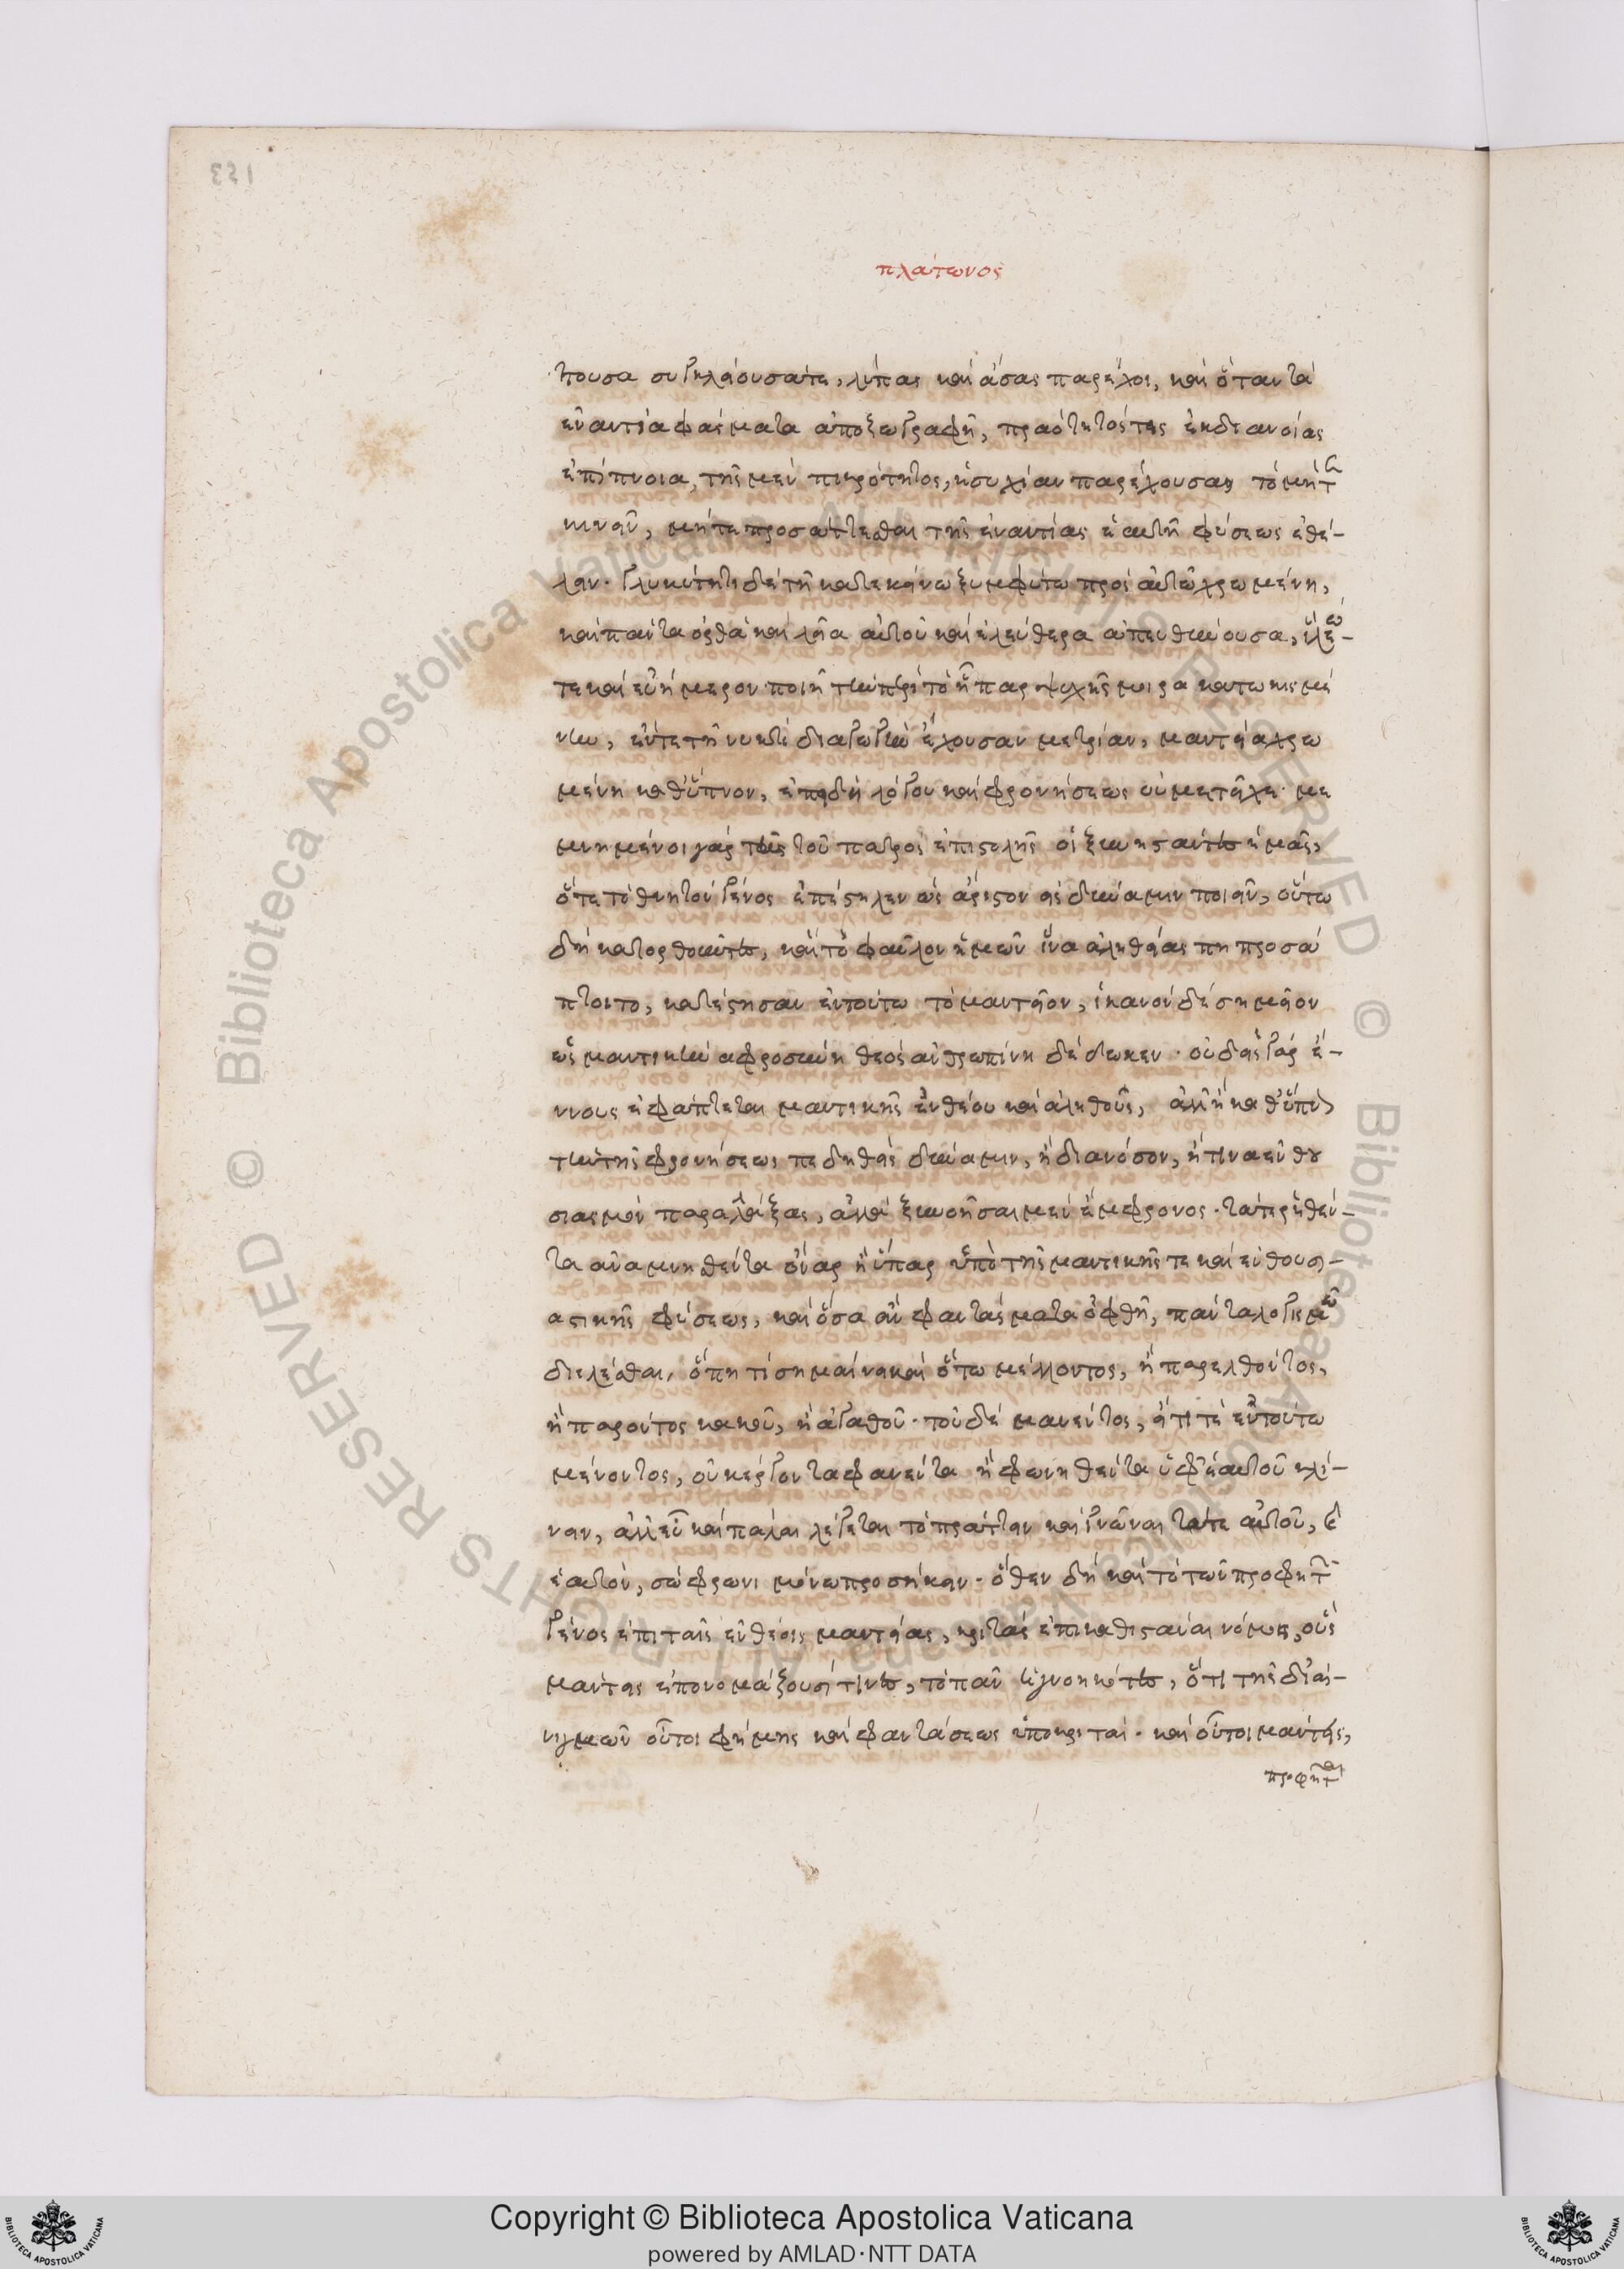 πλάτωνος
τουσα συγκλείουσά τε, λύπας καὶ ἄσας παρέχοι, καὶ ὅταν τὰ
ἐναντία φάσματα ἀποζωγραφῇ, πραότητός τις ἐκ διανοίας
ἐπίπνοια, τῆς μὲν πικρότητος, ἡσυχίαν παρέχουσα τὸ μήτε
κινεῖν, μήτε προσάπτεσθαι τῆς ἐναντίας ἑαυτῇ φύσεως ἐθέ-
λειν. γλυκύτητι δὲ τῇ κατ' ἐκείνω ξυμφύτω πρὸς αὐτῶ χρωμένη,
καὶ πάντα ὀρθὰ καὶ λεῖα αὐτοῦ καὶ ἐλεύθερα ἀπευθύνουσα, ἵλεώ-
τε καὶ εὐήμερον ποιῇ τὴν περὶ τὸ ἧπαρ ψυχῆς μοῖρα κατωκισμέ
νην, ἔν τε τῇ νυκτὶ διαγωγὴν ἔχουσαν μετρίαν, μαντεία χρω
μένη καθ' ὕπνον, ἐπειδὴ λόγου καὶ φρονήσεως οὐ μετεῖχε. με
μνημένοι γὰρ τῆς τοῦ πατρὸς ἐπιστολῆς οἱ ξυνιστάντες ἡμᾶς,
ὅτε τὸ θνητὸν γένος ἐπέστελλεν ὡς ἄριστον εἰς δύναμιν ποιεῖν, οὕτω
δὴ κατορθοῦντες, καὶ τὸ φαῦλον ἡμῶν ἵνα ἀληθείας πη προσά
πτοιτο, κατέστησαν ἐν τούτω τὸ μαντεῖον, ἱκανὸν δὲ σημεῖον
ὡς μαντικὴν ἀφροσύνη θεὸς ἀνθρωπίνη δέδωκεν. οὐδεὶς γὰρ ἔ-
ννους ἐφάπτεται μαντικῆς ἐνθέου καὶ ἀληθοῦς, ἀλλ' ἢ καθ' ὕπνον
τὴν τῆς φρονήσεως πεδηθεὶς δύναμιν, ἢ διὰ νόσον, ἤ τινα ἐνθου
σιασμὸν παραλλάξας, ἀλλὰ ξυννοῆσαι μὲν ἔμφρονος. τά τε ῥηθέν-
τα ἀναμνησθέντα ὄναρ ἢ ὕπαρ ὑπὸ τῆς μαντικῆς τε καὶ ἐνθουσι-
αστικῆς φύσεως, καὶ ὅσα ἂν φαντάσματα ὀφθῇ, πάντα λογισμῶ
διελέσθαι, ὅπη τί σημαίνει καὶ ὅτω μέλλοντος, ἢ παρελθόντος,
ἢ παρόντος κακοῦ, ἢ ἀγαθοῦ. τοῦ δὲ μανέντος, ἔτι τε ἐν τούτω
μένοντος, οὐκ ἔργον τὰ φανέντα ἢ φωνηθέντα ὑφ' ἑαυτοῦ κρί-
νειν, ἀλλ' εὖ καὶ πάλαι λέγεται τὸ πράττειν καὶ γνῶναι τά τε αὑτοῦ, καὶ
ἑαυτὸν, σώφρονι μόνω προσήκειν. ὅθεν δὴ καὶ τὸ τῶν προφητῶν
γένος ἐπὶ ταῖς ἐνθέοις μαντείαις, κριτὰς ἐπικαθιστάναι νόμος, οὓς
μάντεις ἐπονομάζουσί τινες, τὸ πᾶν ἠγνοηκότες, ὅτι τῆς δι' αἰ-
νιγμῶν οὗτοι φήμης καὶ φαντάσεως ὑποκριταὶ. καὶ οὔτοι μάντεις,
προφῆται